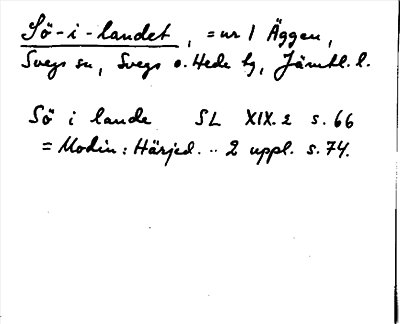 Sö-i-landet, = nr 1 Äggen,
Svegs sn, Svegs o. Hede tg, Jämtl. l.
Sö i lande SL XIX.2 s. 66
= Modin: Härjed. .. 2 uppl. s. 74.